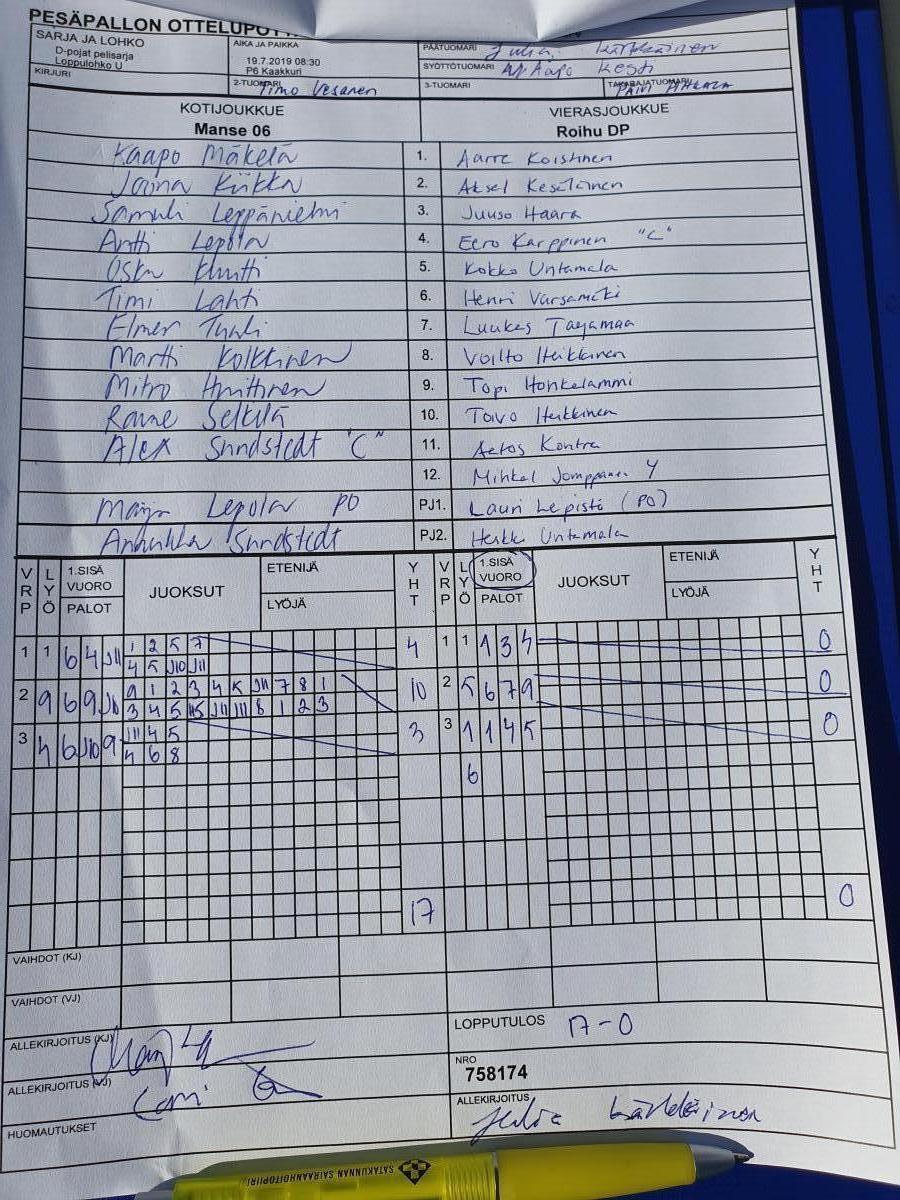 PESÄPALLON OTTELUPÖYT
SARJA JA LOHKO
D-pojat pelisarja
Loppulohko U
AIKA JA PAIKKA
19.7.2019 08:30
P6 Kaakkuri
PÄÄTUOMARI Julia Kärkkäinen
SYÖTTÖTUOMARI Aapo Kesti
KIRJURI
2-TUOMARI Timo Vesanen
3-TUOMARI
TAKARAJATUOMARI
KOTIJOUKKUE VIERASJOUKKUE
Manse 06 Roihu DP
Kaapo Mäkelä 1. Aarre Koistinen
Joona Kiikka 2. Aksel Keseläinen
Samuli Leppäniemi 3. Juuso Haara
Antti Lepola 4. Eero Karppinen "C"
5. Kokko Untamala
Timi Lahti 6. Henri Varsamäki
Elmer Tuuli 7. Luukas Tayamaa
Martti Kolkkinen 8. Voitto Heikkinen
Mitro Huittinen 9. Topi Honkelammi
Raine Selkilä 10. Toivo Heikkinen
Alex Sundstedt "C" 11. Aatos Kontra
12. Mihkel Jomppanen Y
Maija Lepola PO PJ1. Lauri Lepistö (PO)
Annukka Sundstedt PJ2. Heikki Untamala
VRP LYÖ 1.SISÄ VUORO PALOT JUOKSUT ETENIJÄ LYÖJÄ YHT VRP LYÖ 1.SISÄ VUORO PALOT JUOKSUT ETENIJÄ LYÖJÄ YHT
1 1 6 4 J11 1 2 5 7 4 1 1 1 3 4 0
4 5 J10 J11
2 9 6 9 J10 9 1 2 3 4 5 J11 7 8 1 10 2 5 6 7 9 0
3 4 5 J11 J11 8 1 2 3
3 4 6 J10 9 J11 4 5 3 3 1 1 4 5 0
4 6 8
6
17 0
VAIHDOT (KJ)
VAIHDOT (VJ)
ALLEKIRJOITUS (KJ)
LOPPUTULOS 17-0
ALLEKIRJOITUS (VJ)
NRO
758174
HUOMAUTUKSET
ALLEKIRJOITUS Julia Kärkkäinen
SATAKUNNAN SAIRAANHOITOPIIRI